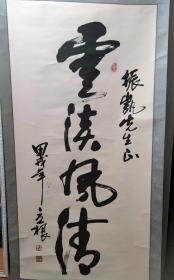 振凱先生正
雲淡風清
甲戌年 立根